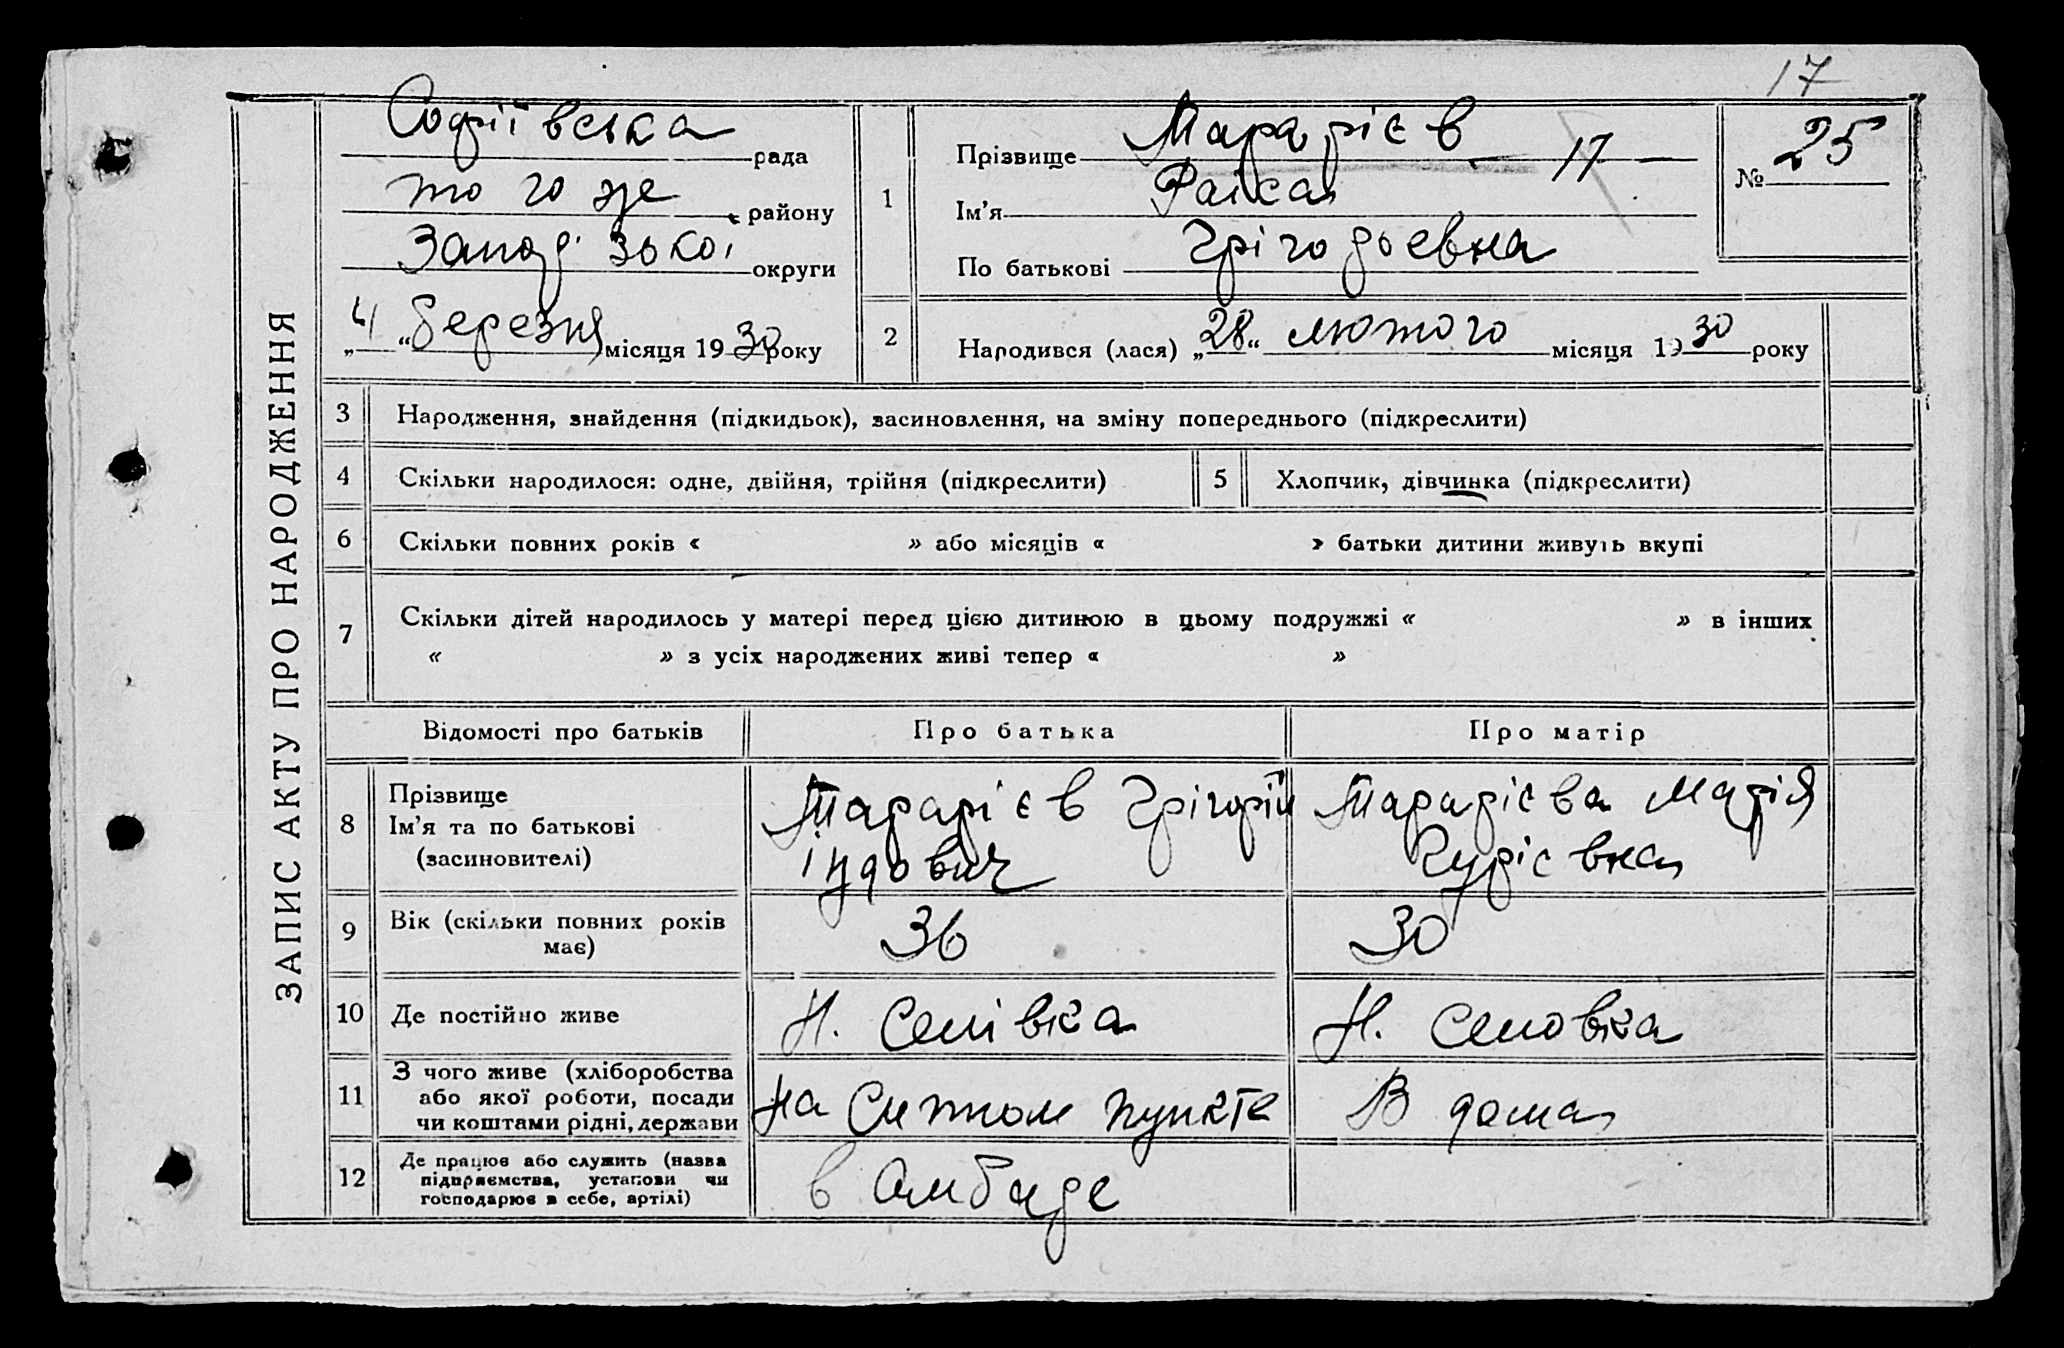 17
ЗАПИС АКТУ ПРО НАРОДЖЕННЯ
Софіївська рада
того же району
Запорізької округи
„4“ березня місяця 1930 року
1
Прізвище Тарарієв 17
Ім’я Раіса
По батькові Грігорьевна
№ 25
2
Народився (лася) „28“ лютого місяця 1930 року
3 Народження, знайдення (підкидьок), засиновлення, на зміну попереднього (підкреслити)
4 Скільки народилося: одне, двійня, трійня (підкреслити)
5 Хлопчик, дівчинка (підкреслити)
6 Скільки повних років « » або місяців « » батьки дитини живуть вкупі
7 Скільки дітей народилось у матері перед цією дитиною в цьому подружжі « » в інших
« » з усіх народжених живі тепер « »
Відомості про батьків Про батька Про матір
8 Прізвище
Ім’я та по батькові
(засиновителі)
Тарарієв Грігорій
Тарарієва Марія
Гурієвна
9 Вік (скільки повних років
має)
36
30
10 Де постійно живе
Н.Селівка
11 З чого живе (хліборобства
або якої роботи, посади
чи коштами рідні, держави
на пункте
В дома
12 Де працює або служить (назва
підприємства, установи чи
господарює в себе, артілі)
в